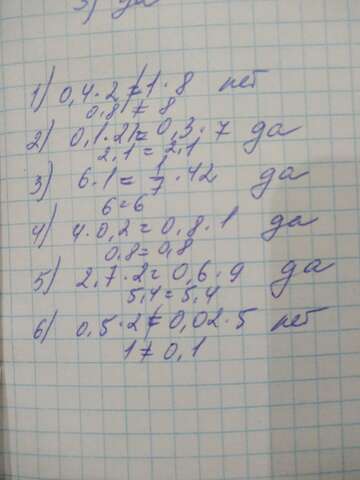 3) да
1) 0,4·2≠1·8 нет
0,8≠8
2) 0,1·21=0,3·7 да
2,1=2,1
3) 6·1=1/7·42 да
6=6
4) 4·0,2=0,8·1 да
0,8=0,8
5) 2,7·2=0,6·9 да
5,4=5,4
6) 0,5·2≠0,02·5 нет
1≠0,1